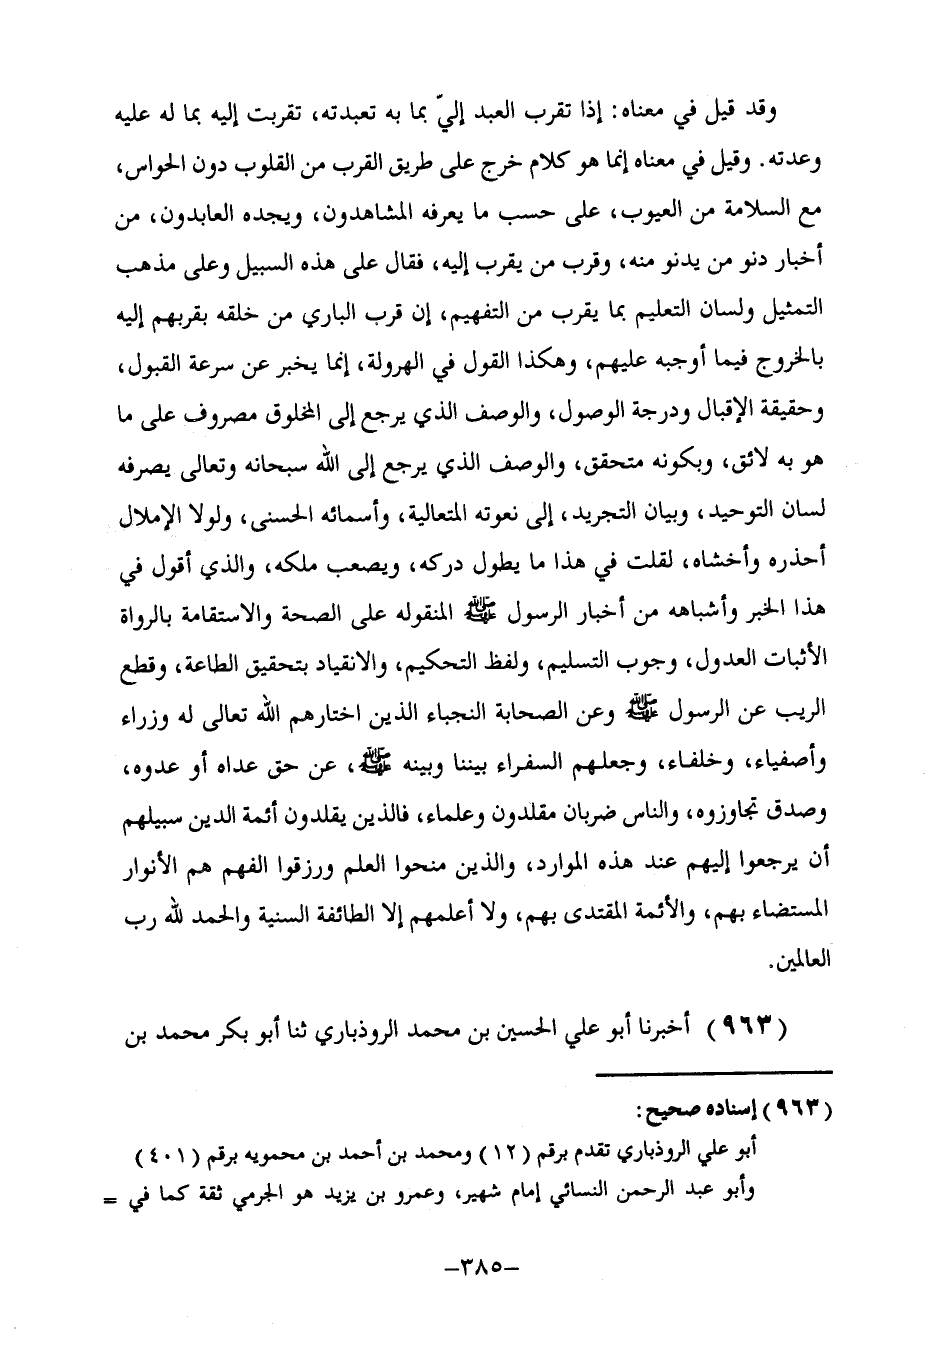 وقد قيل في معناه: إذا تقرب العبد إليّ بما به تعبدته، تقربت إليه بما له عليه
وعدته. وقيل في معناه إنما هو كلام خرج على طريق القرب من القلوب دون الحواس،
مع السلامة من العيوب، على حسب ما يعرفه المشاهدون، ويجده العابدون، من
أخبار دنو من يدنو منه، وقرب من يقرب إليه، فقال على هذه السبيل وعلى مذهب
التمثيل ولسان التعليم بما يقرب من التفهيم، إن قرب الباري من خلقه بقربهم إليه
بالخروج فيما أوجبه عليهم، وهكذا القول في الهرولة، إنما يخبر عن سرعة القبول،
وحقيقة الإقبال ودرجة الوصول، والوصف الذي يرجع إلى المخلوق مصروف على ما
هو به لائق، وبكونه متحقق، والوصف الذي يرجع إلى الله سبحانه وتعالى يصرفه
لسان التوحيد، وبيان التجريد، إلى نعوته المتعالية، وأسمائه الحسنى، ولولا الإملال
أحذره وأخشاه، لقلت في هذا ما يطول دركه، ويصعب ملكه، والذي أقول في
هذا الخبر وأشباهه من أخبار الرسول ﷺ المنقوله على الصحة والاستقامة بالرواة
الأثبات العدول، وجوب التسليم، ولفظ التحكيم، والانقياد بتحقيق الطاعة، وقطع
الريب عن الرسول ﷺ وعن الصحابة النجباء الذين اختارهم الله تعالى له وزراء
وأصفياء، وخلفاء، وجعلهم السفراء بيننا وبينه ﷺ، عن حق عداه أو عدوه،
وصدق تجاوزوه، والناس ضربان مقلدون وعلماء، فالذين يقلدون أئمة الدين سبيلهم
أن يرجعوا إليهم عند هذه الموارد، والذين منحوا العلم ورزقوا الفهم هم الأنوار
المستضاء بهم، والأئمة المقتدى بهم، ولا أعلمهم إلا الطائفة السنية والحمد لله رب
العالمين.
(٩٦٣) أخبرنا أبو علي الحسين بن محمد الروذباري ثنا أبو بكر محمد بن
(٩٦٣) إسناده صحيح:
أبو علي الروذباري تقدم برقم (١٢) ومحمد بن أحمد بن محمويه برقم (٤٠١)
وأبو عبد الرحمن النسائي إمام شهير، وعمرو بن يزيد هو الجرمي ثقة كما في =
-٣٨٥-